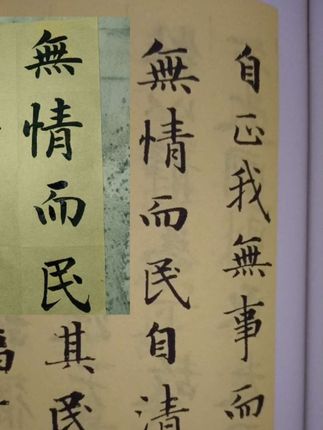 自正我無事而
無情而民自清
無情而民
其民